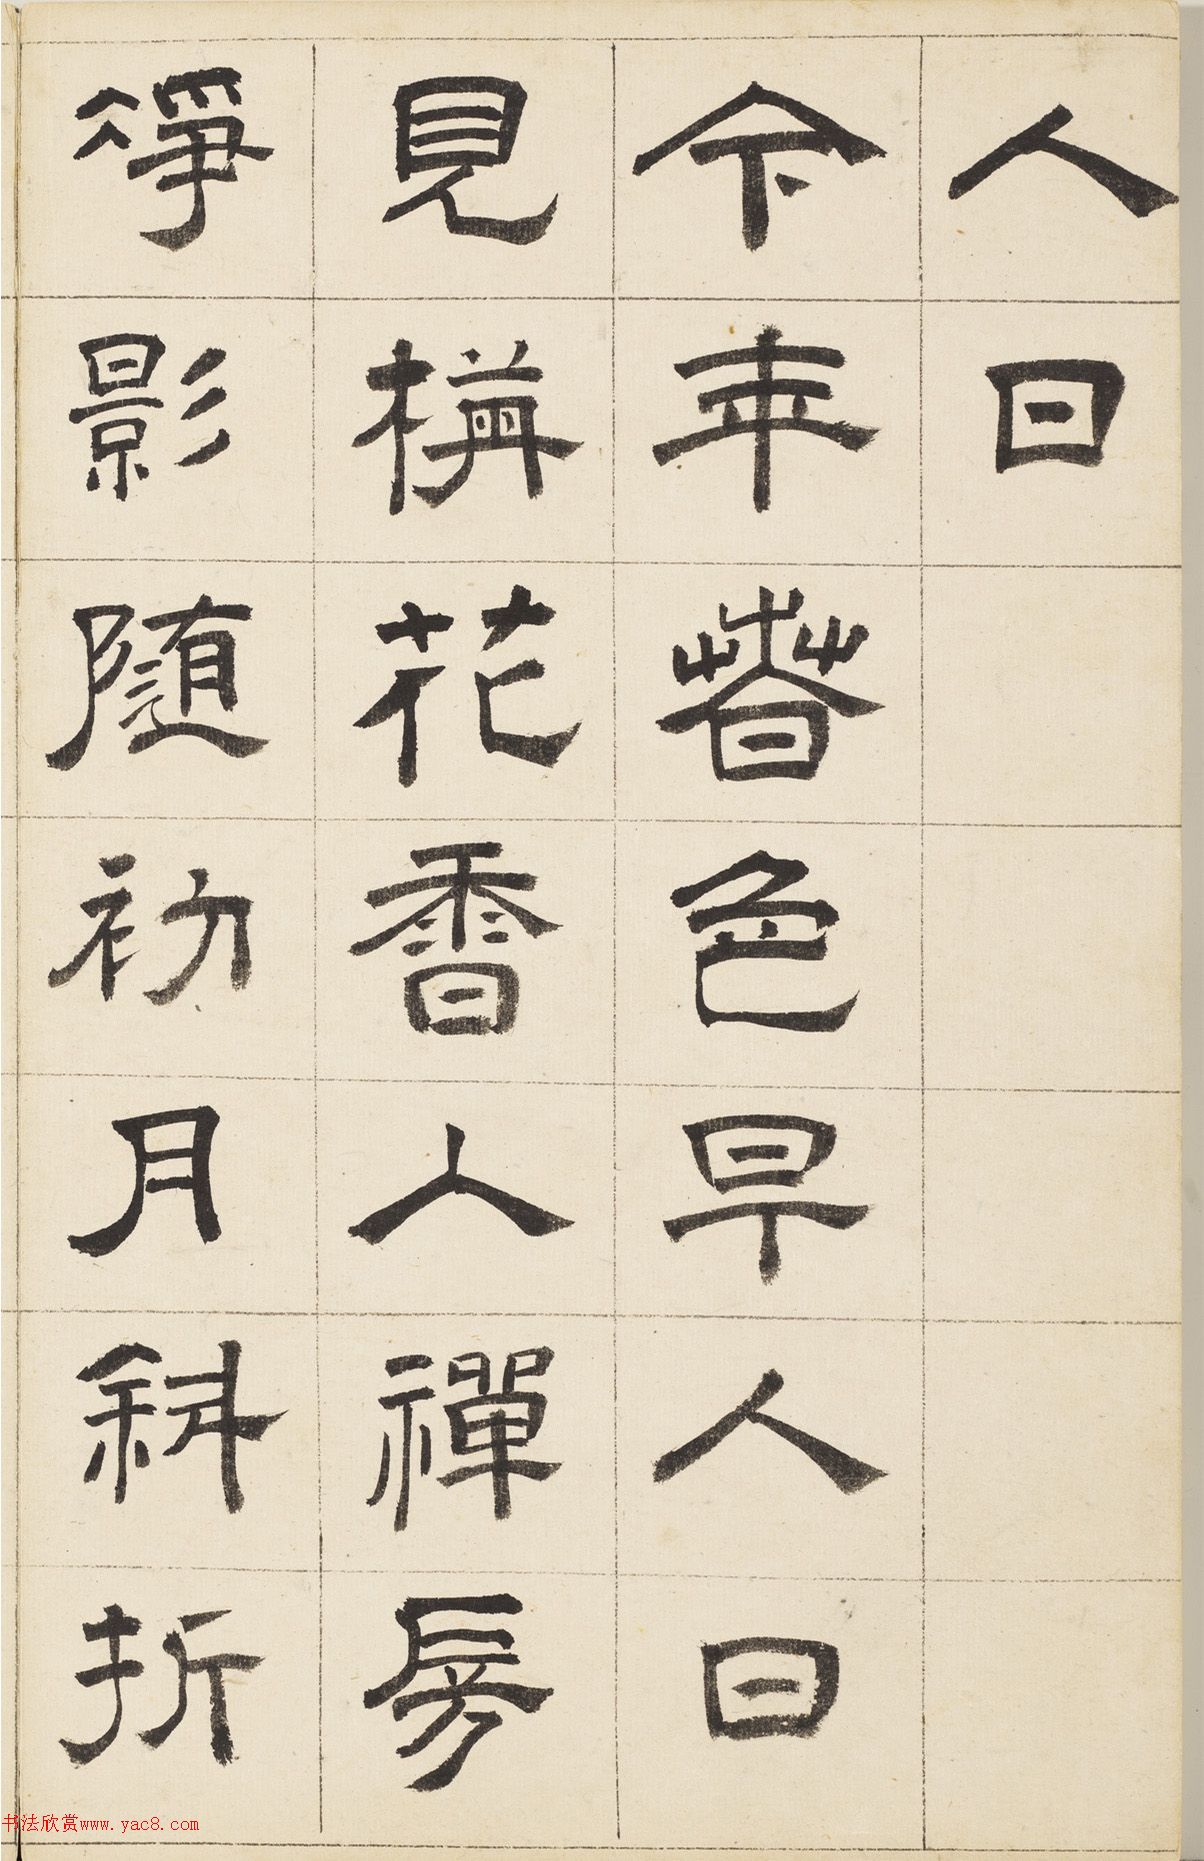 人日
今年春色早人日
見梅花香入禪房
凈影隨初月斜折
书法欣赏www.yac8.com